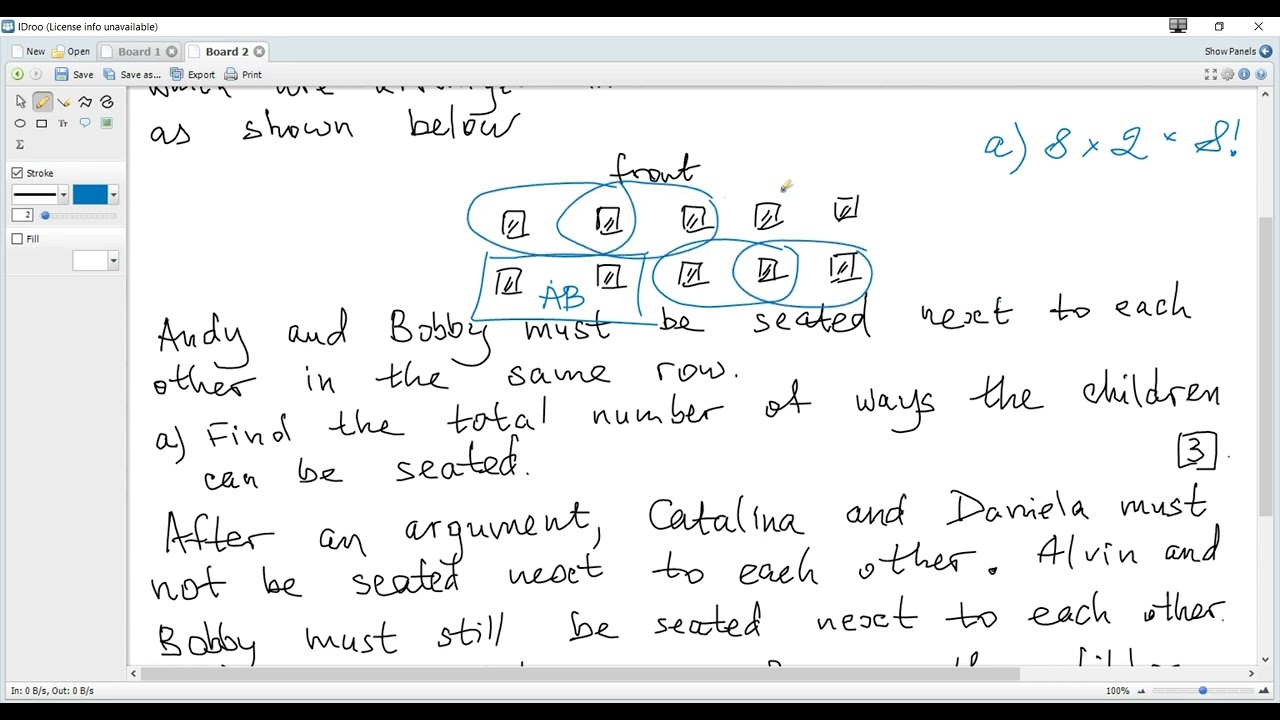 IDroo (License info unavailable)
New Open Board 1 Board 2 Show Panels
Save Save as... Export Print
which are
as shown below
a) 8 × 2 × 8!
front
AB
Stroke
2
Fill
Andy and Bobby must be seated next to each
other in the same row.
a) Find the total number of ways the children
can be seated. [3]
After an argument, Catalina and Daniela must
not be seated next to each other. Alvin and
Bobby must still be seated next to each other.
Tr
Σ
In: 0 B/s, Out: 0 B/s 100%